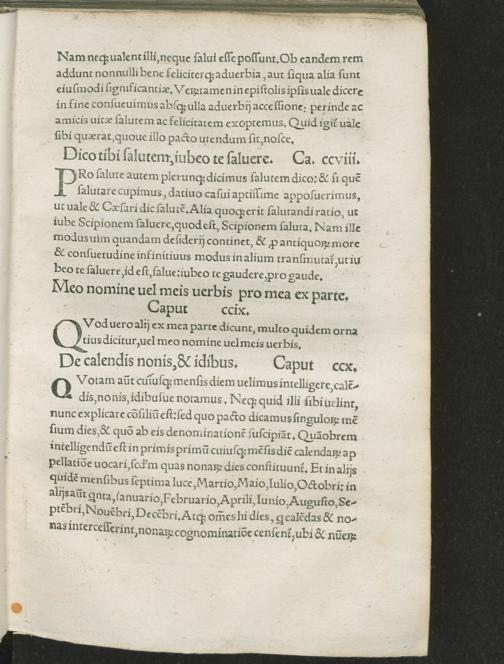 Nam neqꝫ ualent illi, neque salui esse possunt. Ob eandem rem
addunt nonnulli bene feliciterqꝫ aduerbia, aut siqua alia sunt
eiusmodi significantiæ. Veꝝtamen in epistolis ipsis uale dicere
in fine consueuimus absqꝫ ulla aduerbij accessione: perinde ac
amicis uitæ salutem ac felicitatem exoptemus. Quid igit̃ uale
sibi quærat, quoue illo pacto utendum sit, nosce.
Dico tibi salutem, iubeo te saluere. Ca. ccviii.
PRo salute autem plerunqꝫ dicimus salutem dico: & si quẽ
salutare cupimus, datiuo casui aptissime apposuerimus,
ut uale & Cæsari dic salutẽ. Alia quoqꝫ erit salutandi ratio, ut
iube Scipionem saluere, quod est, Scipionem saluta. Nam ille
modus uim quandam desiderij continet, & ꝓ antiquoꝝ more
& consuetudine infinitiuus modus in alium transmutat̃, ut iu
beo te saluere, id est, salue: iubeo te gaudere, pro gaude.
Meo nomine uel meis uerbis pro mea ex parte.
Caput ccix.
QVod uero alij ex mea parte dicunt, multo quidem orna
tius dicitur, uel meo nomine uel meis uerbis.
De calendis nonis, & idibus. Caput ccx.
QVotam aũt cuiusqꝫ mensis diem uelimus intelligere, calẽ-
dis, nonis, idibusue notamus. Neqꝫ quid illi sibi uelint,
nunc explicare cõsiliũ est: sed quo pacto dicamus singuloꝝ mẽ
sium dies, & quõ ab eis denominationẽ suscipiãt. Quãobrem
intelligendũ est in primis primũ cuiusqꝫ mẽsis diẽ calendaꝝ ap
pellatiõe uocari, secd'm quas nonaꝝ dies constituunt̃. Et in alijs
quidẽ mensibus septima luce, Martio, Maio, Iulio, Octobri: in
alijs aũt qnta, ianuario, Februario, Aprili, Iunio, Augusto, Se-
ptẽbri, Nouẽbri, Decẽbri. Atqꝫ om̃es hi dies, q calẽdas & no-
nas intercesserint, nonaꝝ cognominatiõe censent̃, ubi & nũeꝝ